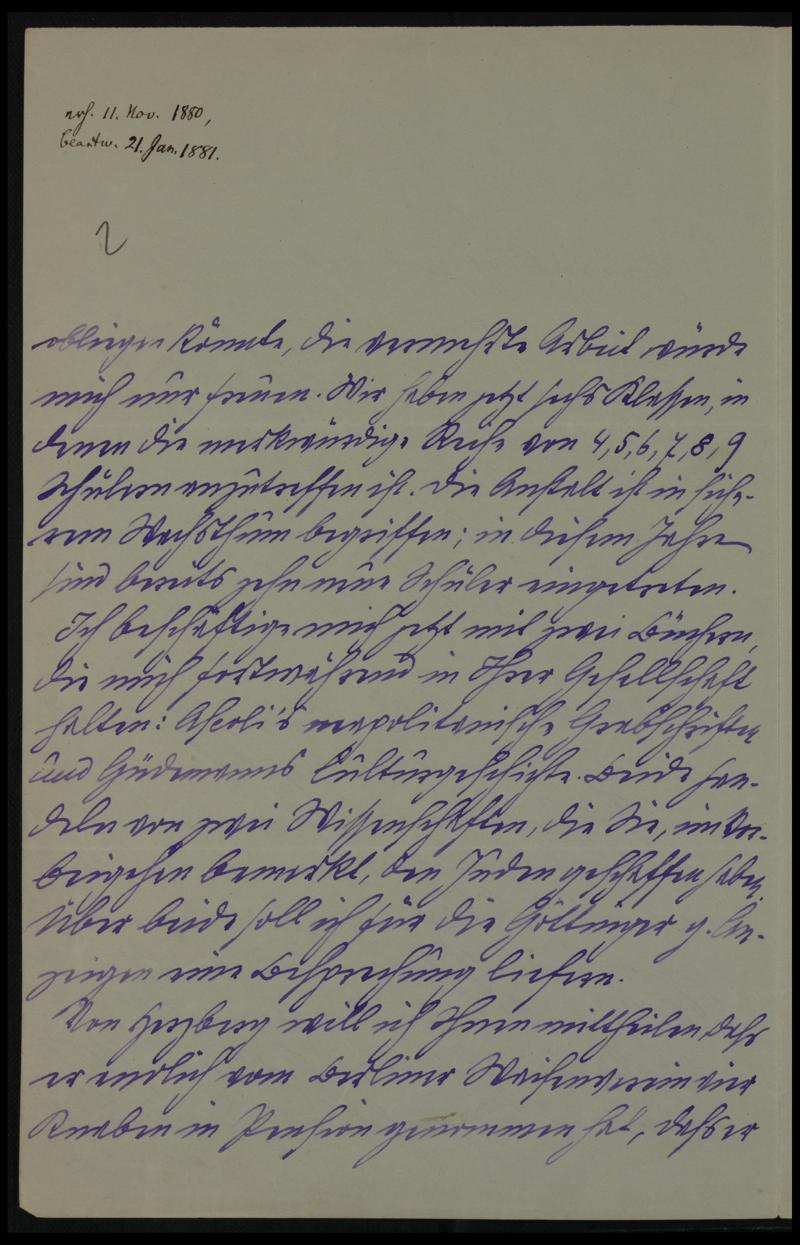 erh. 11. Nov. 1880,
beantw. 21. Jan. 1881.
2
obliegen könnte, die vermehrte Arbeit würde
mich nur freuen. Wir haben jetzt sechs Klassen, in
denen die merkwürdige Reihe von 4, 5, 6, 7, 8, 9
Schülern anzutreffen ist. Die Anstalt ist in siche-
rem Wachsthum begriffen; in diesem Jahre
sind bereits zehn neue Schüler eingetreten.
Ich beschäftige mich jetzt mit zwei Büchern,
die mich fortwährend in Ihrer Gesellschaft
halten: Ascoli's neapolitanische Grabschriften
und Güdemanns Culturgeschichte. Beide han-
deln von zwei Wissenschaften, die Sie, im Vor-
beigehen bemerkt, den Juden geschaffen haben.
Über beide soll ich für die Göttinger g. An-
zeigen eine Besprechung liefern.
Von Herzberg will ich Ihnen mittheilen, dass
er endlich vom Berliner Waisenverein vier
Knaben in Pension genommen hat, dass er